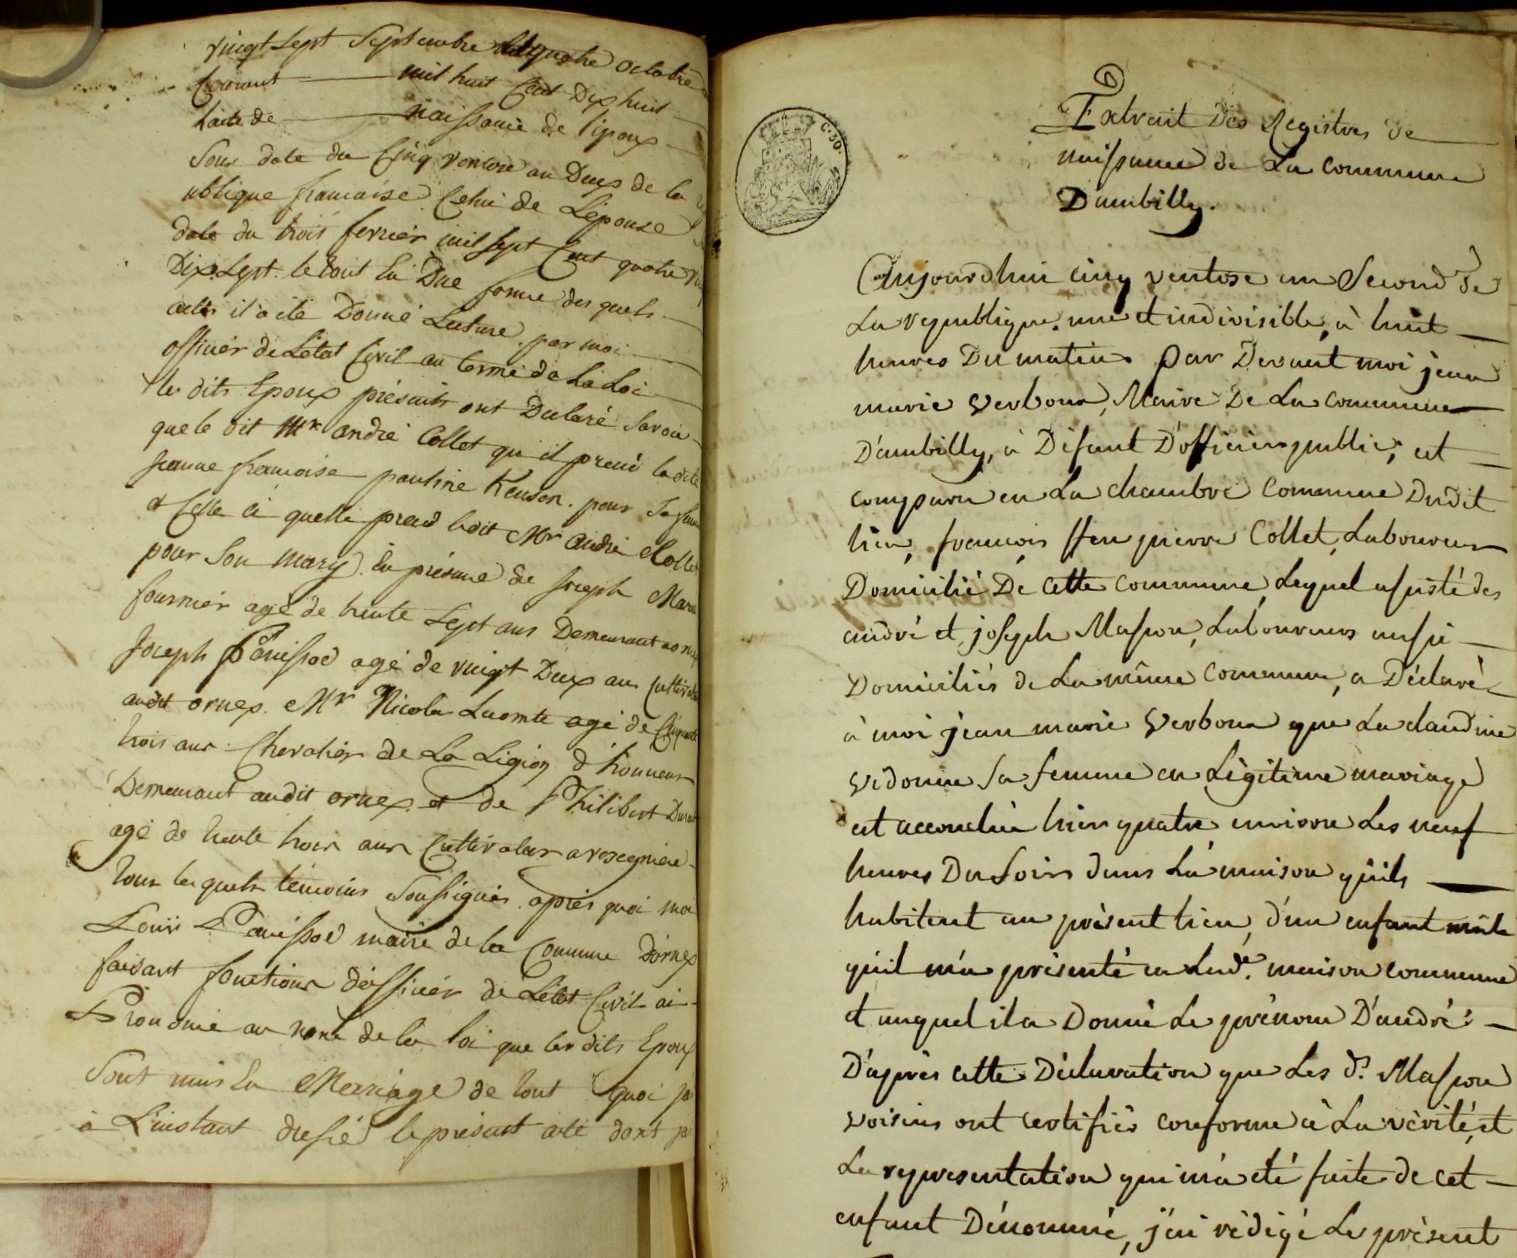 vingt Sept Septembre et quatre octobre
Courant mil huit Cent Dix huit
L'acte de naissance de l'epoux
Sous date du Cinq ventose an Deux de la
ublique francaise Celui de L'epouse
date du trois fevrier mil Sept Cent quatre
Dix Sept le tout En Due forme des quels
actes il a été Donné Lecture par moi
officier de L'etat Civil au terme de La Loi
les dits Epoux présents ont Déclaré Savoir
que le dit Mr andré Collet qu'il prend la dite
Jeanne francoise pauline pour Sa
& Celle ci quelle prend ledit Mr andré Collet
pour Son mary En présence de Joseph Marie
fournier agé de trente Sept ans Demeurant a
Joseph Panissod agé de vingt Deux ans Cultiva
audit ornex Mr Nicola Lacomte agé de Cinquante
trois ans Chevalier de La Légion d'honneur
Demeurant audit ornex et de Philibert
agé de trente trois ans Cultivateur a
tous les quels témoins Soussignés après quoi moi
Louis Panissod maire de la Commune D'ornex
faisant fonctions d'officier de L'etat Civil ai
Prononcé au nom de la loi que les dits Epoux
Sont unis En Mariage de tout quoi j'ai
à L'instant dressé le présent acte dont
C. 30.
Extrait Des Registres de
naissance de La commune
D'ambilly.
Aujourdhui cinq ventose an Second de
La republique une et indivisible, à huit
heures Du matin par Devant moi jean
marie Verboux, Maire De La commune
D'ambilly, à Difaut D'officier public, est
comparu en La chambre Commune Dudit
lieu, françois ffeu pierre Collet, Laboureur
Domicilié De cette commune, Lequel assisté des
andré et joseph Masson, Laboureurs aussi
Domiciliés de La même Commune, a Déclaré
à moi jean marie Verboux que La claudine
Vidonne Sa femme en Légitime mariage
est accouchée hier quatre environ Les neuf
heures Du Soir dans La maison qu'ils
habitent au présent lieu, d'un enfant mâle
qu'il m'a présenté en Lade. maison commune
et auquel il a Donné Le prénom D'andré.
D'après cette Déclaration que Les ds. Masson
voisins ont certifiés conforme à La vérité, et
La représentation qui m'a été faite de cet
enfant Dénommé, j'ai rédigé Le présent